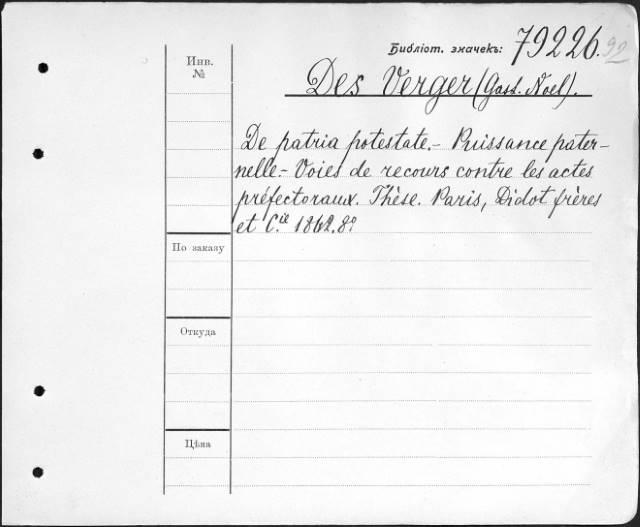 Библіот. значекъ: 79226. 92
Инв.
№
Des Verger (Gast. Noel).
De patria potestate.- Puissance pater-
nelle.- Voies de recours contre les actes
préfectoraux. Thèse. Paris, Didot frères
et Cie 1862. 8º
По заказу
Откуда
Цѣна